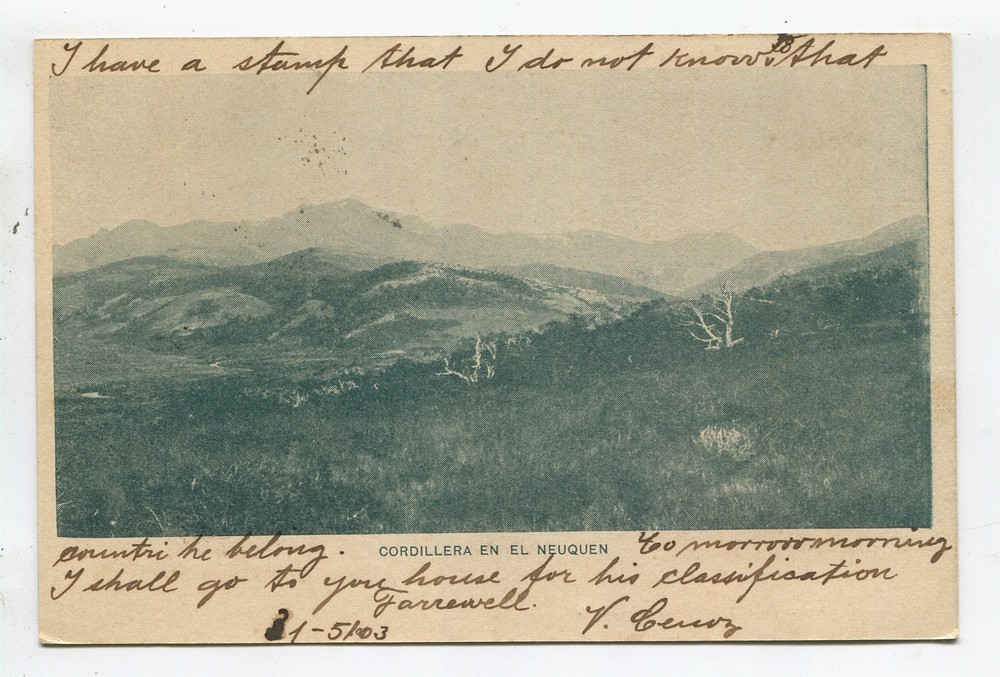 I have a stamp that I do not know to that
countri he belong. CORDILLERA EN EL NEUQUEN To morrow morning
I shall go to you house for his classification
Farrewell.
1-5/03 V.